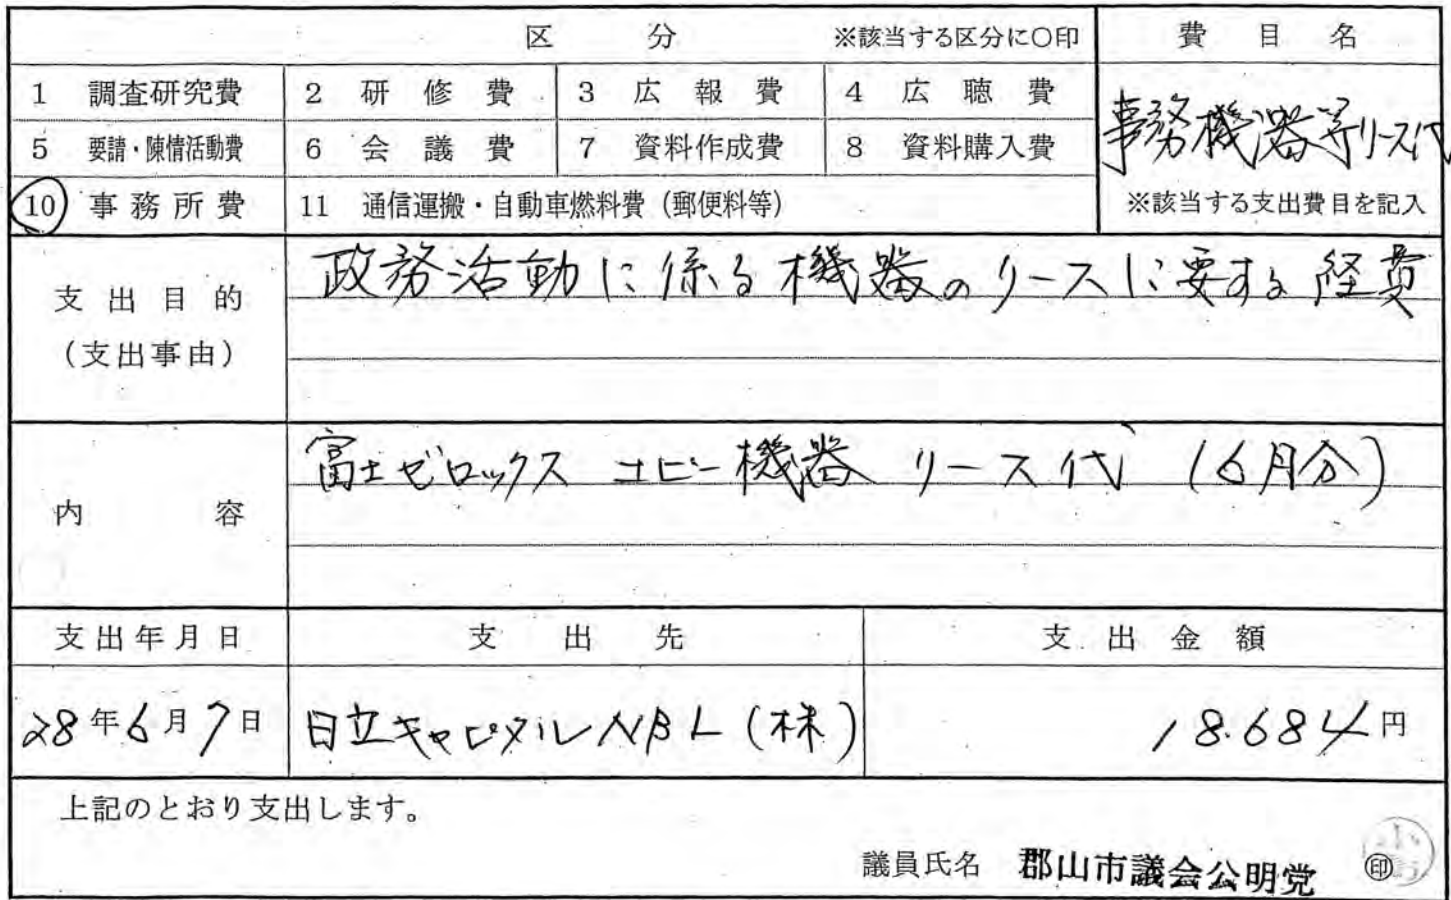 区分 ※該当する区分に○印 費目名
1 調査研究費 2 研修費 3 広報費 4 広聴費
事務機器等リース代
5 要請・陳情活動費 6 会議費 7 資料作成費 8 資料購入費
10 事務所費 11 通信運搬・自動車燃料費（郵便料等） ※該当する支出費目を記入
支出目的
（支出事由）
政務活動に係る機器のリースに要する経費
内容
富士ゼロックス コピー機器 リース代 (6月分)
支出年月日 支出先 支出金額
28年6月7日 日立キャピタルNBL(株) 18.684円
上記のとおり支出します。
議員氏名 郡山市議会公明党 ㊞